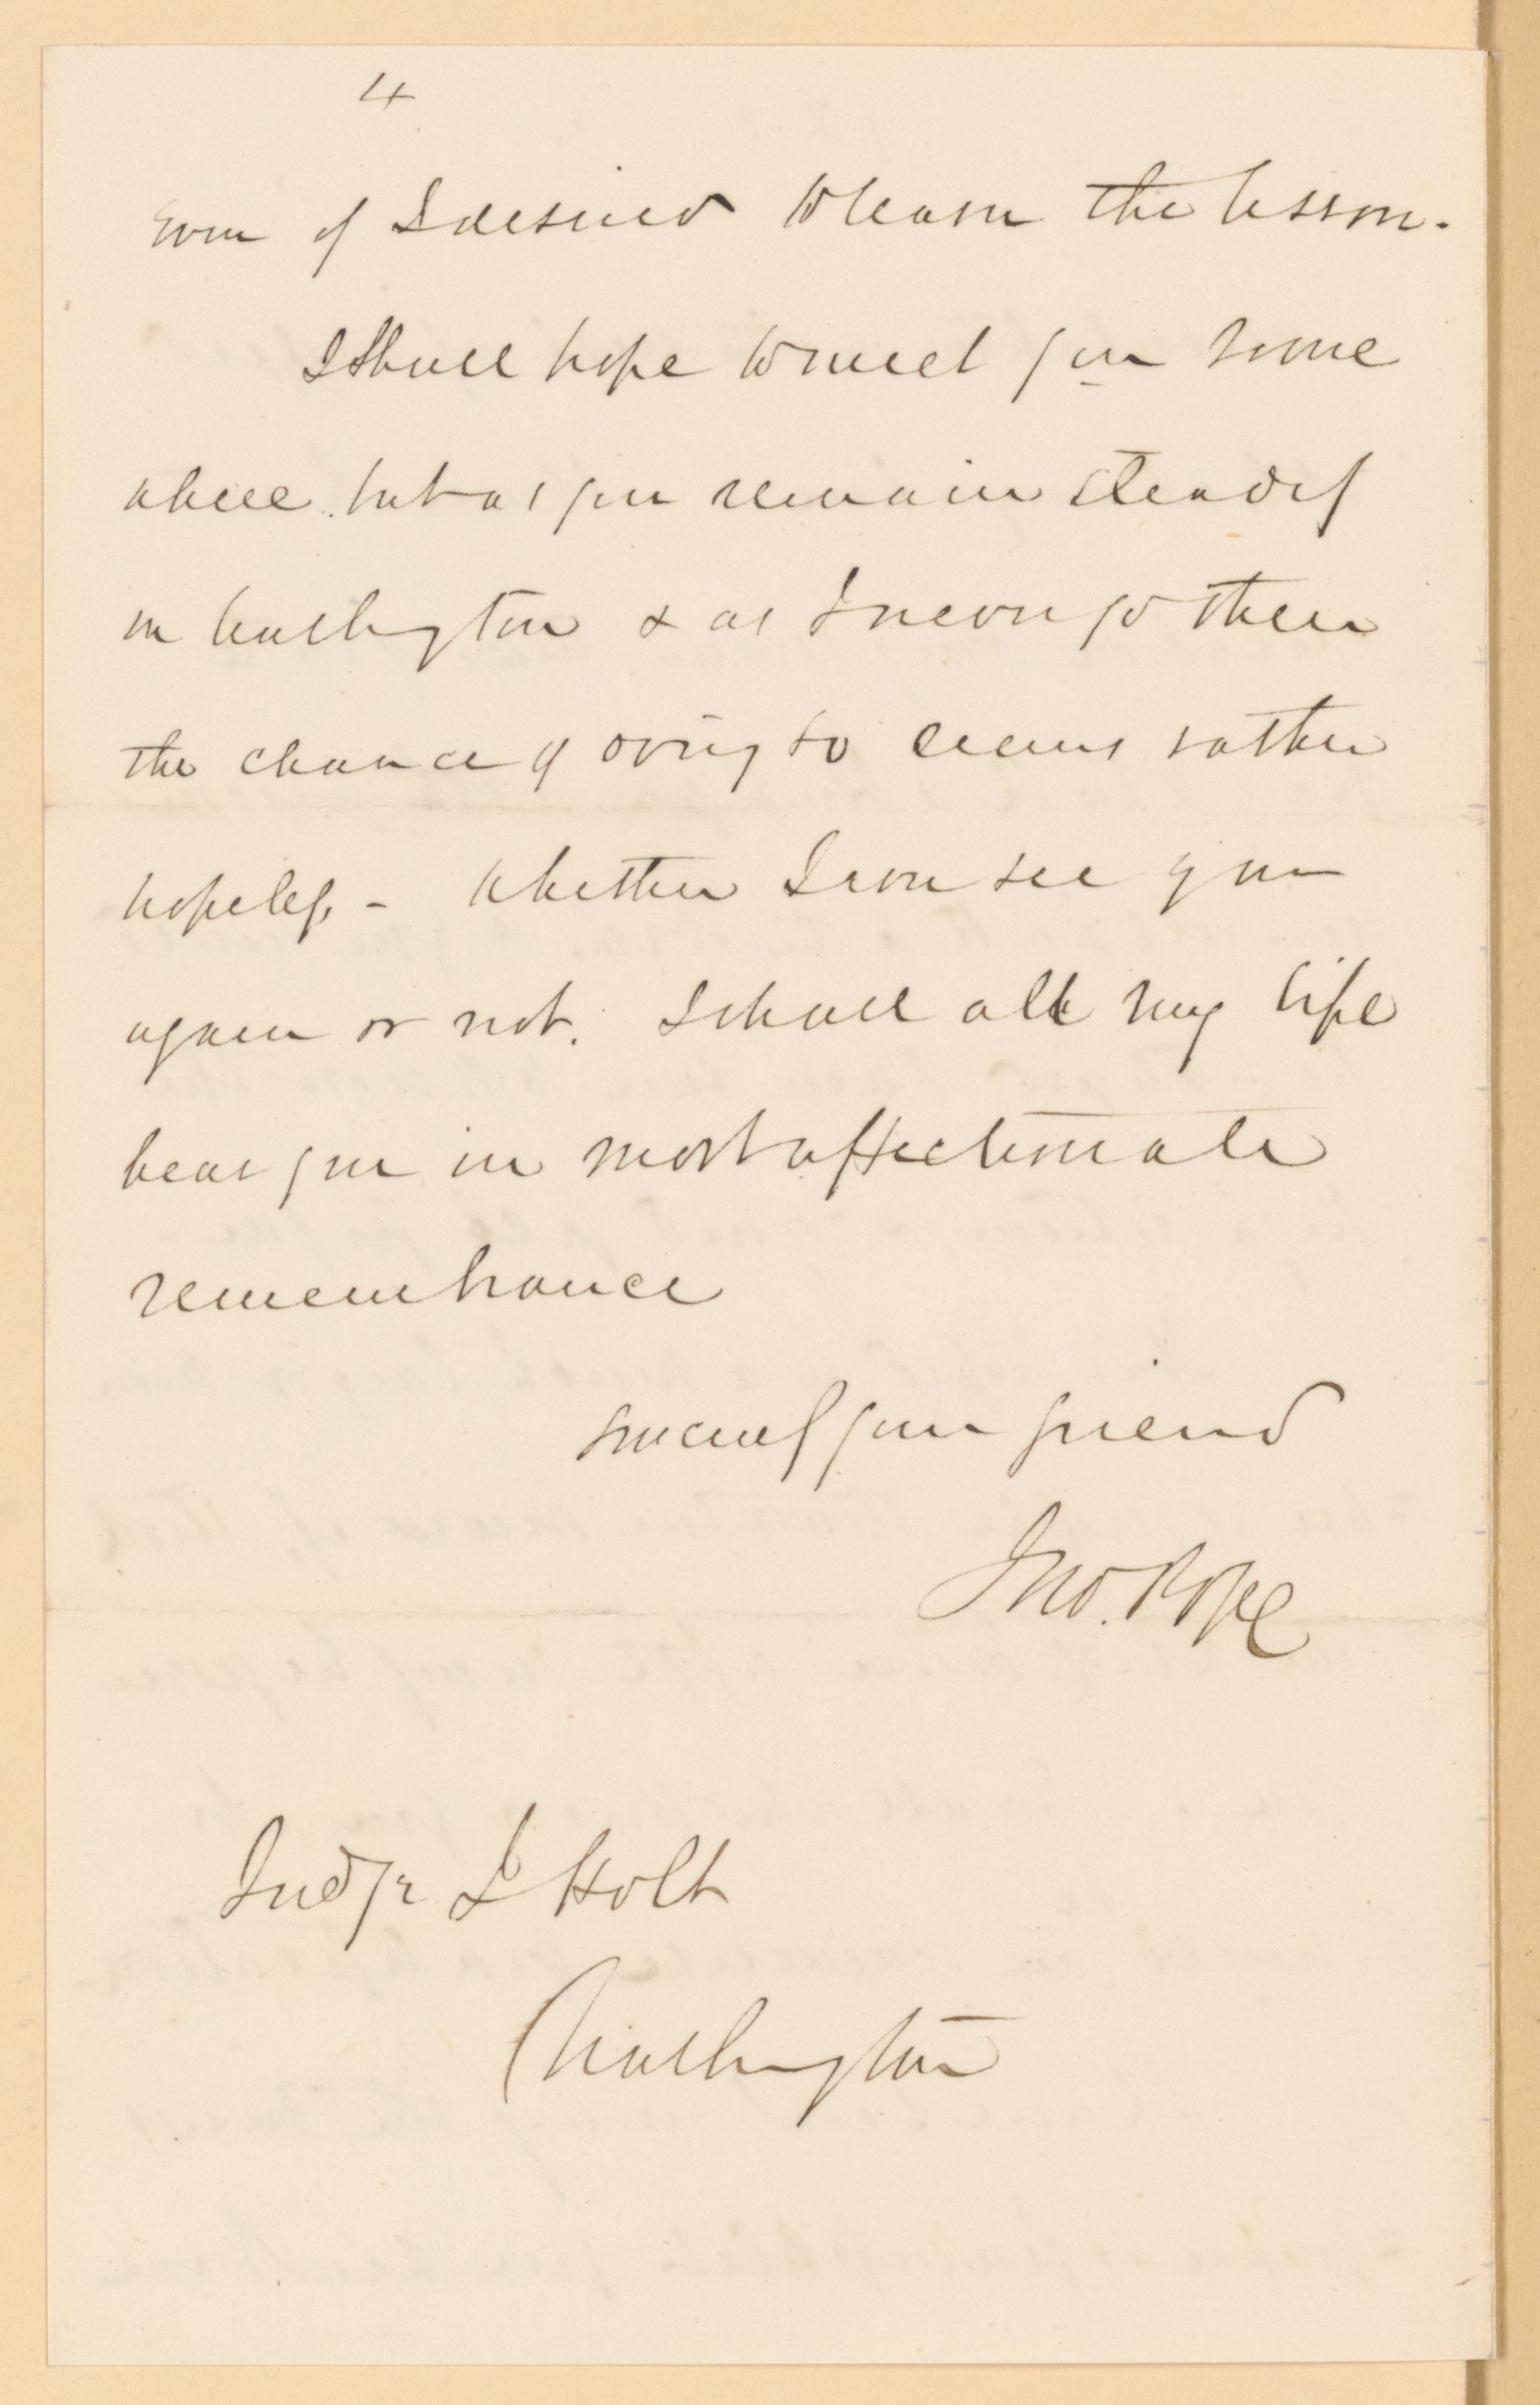 4
Even if I desired to learn the lesson.
I Shall hope to meet you some
where, but as you remain steadily
in Washington & as I never go there
the chance of doing so seems rather
hopeless – Whether I ever see you
again or not, I shall all my life
bear you in most affectionate
remembrance
Sincerely your friend
Jno. Pope
Judge J Holt
Washington